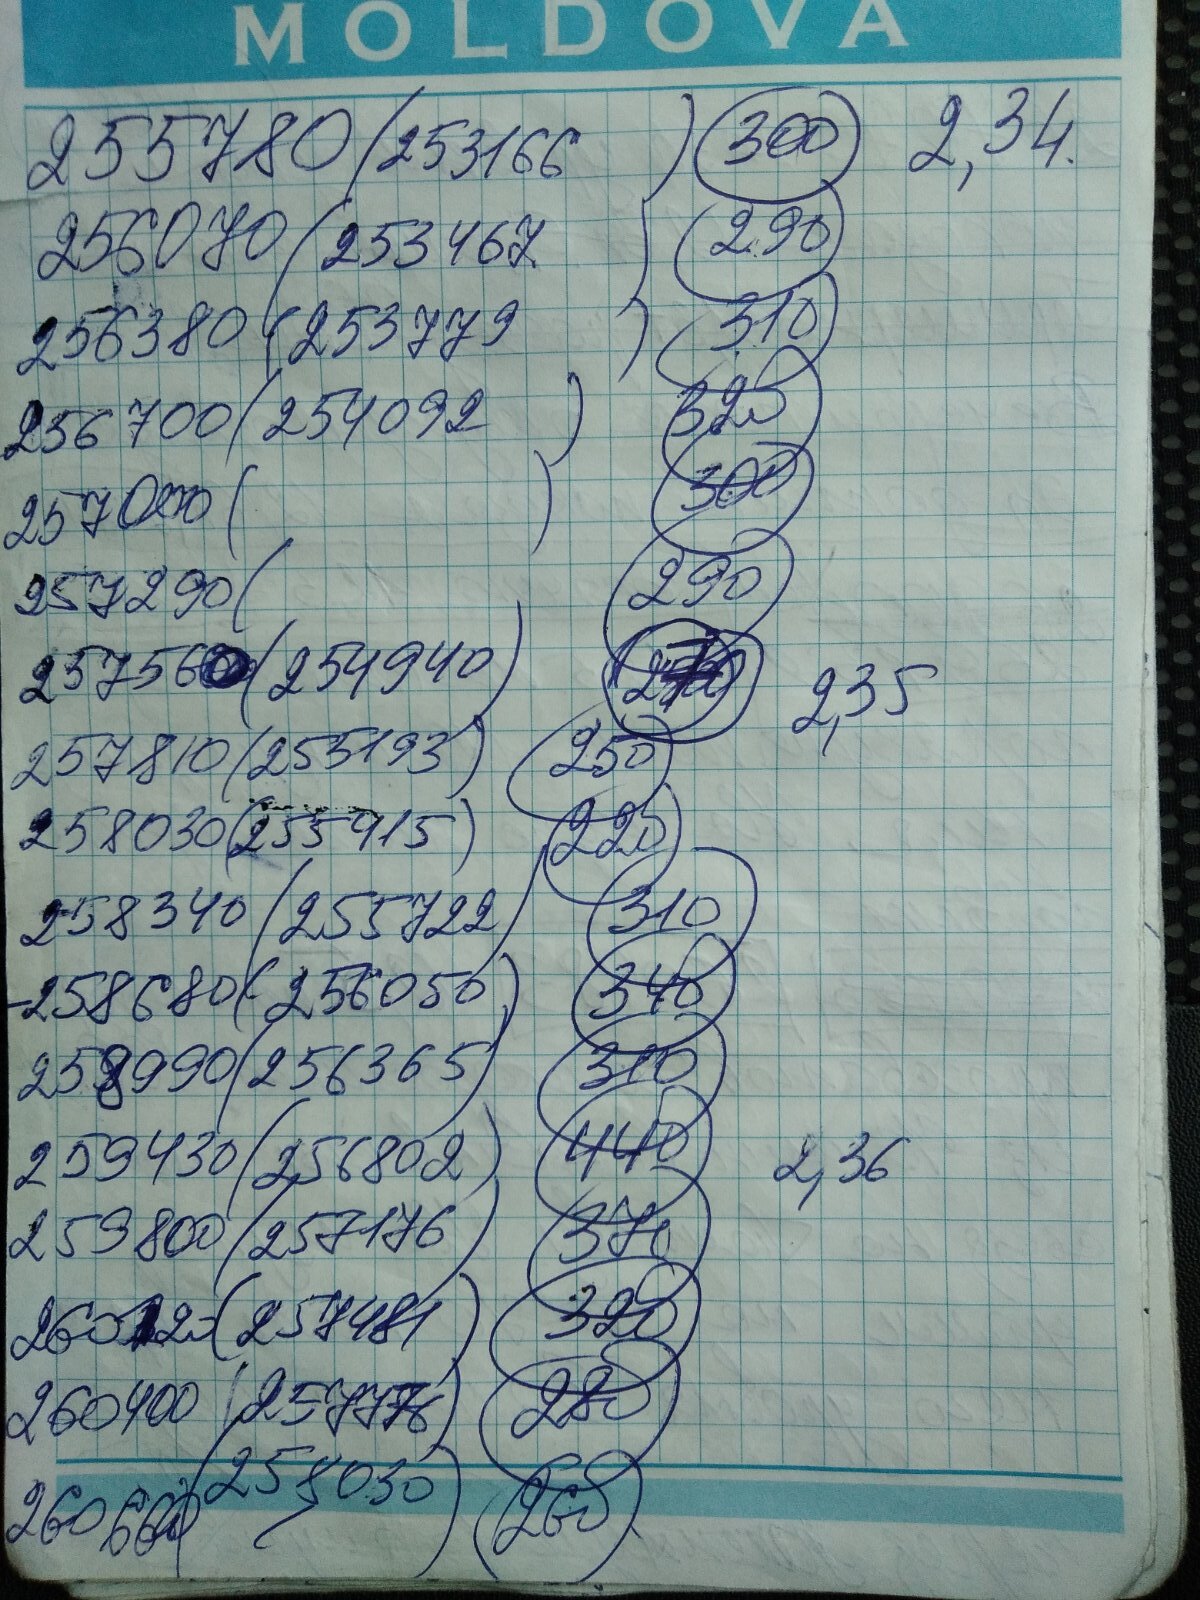 MOLDOVA
255780 (253166) 300 2,34.
256070 (253467) 290
256380 (253779) 310
256700 (254092) 320
257000 ( ) 300
257290 ( 290
257560 (254940) 270 2,35
257810 (255193) 250
258030 (255415) 220
258340 (255722) 310
-258680 (256050) 340
258990 (256365) 310
259430 (256802) 440 2,36
259800 (257176) 370
260120 (257481) 320
260400 (257776) 280
260660 (258030) 260